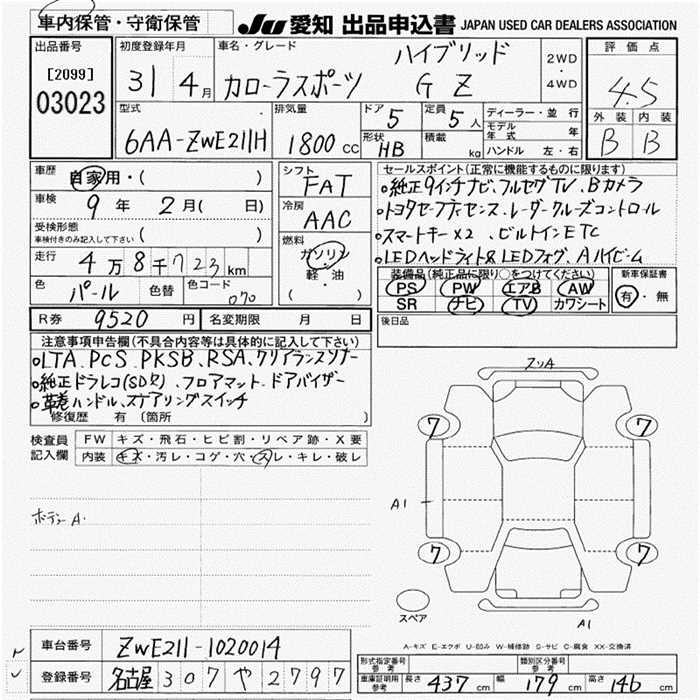 車内保管・守衛保管 JU 愛知 出品申込書 JAPAN USED CAR DEALERS ASSOCIATION
出品番号 初度登録年月 車名・グレード ハイブリッド 2WD・4WD 評価点
[2099] 31 4月 カローラスポーツ G Z 4.5
03023 外装 内装
型式 排気量 ドア 5 定員 5人 ディーラー・並行 B B
6AA-ZWE211H 1800cc 形状 HB 積載 kg モデル年式 年
ハンドル 左・右
車歴 自家用・( ) シフト FAT セールスポイント(正常に機能するものに限ります)
車検 9年 2月( 日) 冷房 AAC ○純正9インチナビ、フルセグTV、Bカメラ
受検形態 ○トヨタセーフティセンス、レーダークルーズコントロール
車検付きのみ記入して下さい( ) 燃料 ガソリン・軽・油 ( ) ○スマートキーX2、ビルトインETC
走行 4万8千723km ○LEDヘッドライト&LEDフォグ、Aハイビーム
色 パール 色替 色コード 070 装備品(純正品に限り○をつけてください) 新車保証書
PS PW エアB AW 有・無
SR ナビ TV カワシート
R券 9520円 名変期限 月 日 後日品
注意事項申告欄(不具合内容等は具体的に記入して下さい)
○LTA、PCS、PKSB、RSA、クリアランスソナー
○純正ドラレコ(SD欠)、フロアマット、ドアバイザー
○革巻ハンドル、ステアリングスイッチ
修復歴 有 〔箇所 〕
検査員記入欄 FW キズ・飛石・ヒビ割・リペア跡・X要
内装 キズ・汚レ・コゲ・穴・スレ・キレ・破レ
スリA
7 7
A1
ボディA.
7 7
スペア
A1
A-キズ E-エクボ U-凹み W-補修跡 S-サビ C-腐食 XX-交換済
車台番号 ZWE211-1020014
形式指定番号 参考 類別区分番号 参考
登録番号 名古屋 307 や 2797 車庫証明用 参考 長さ 437cm 幅 179cm 高さ 146cm